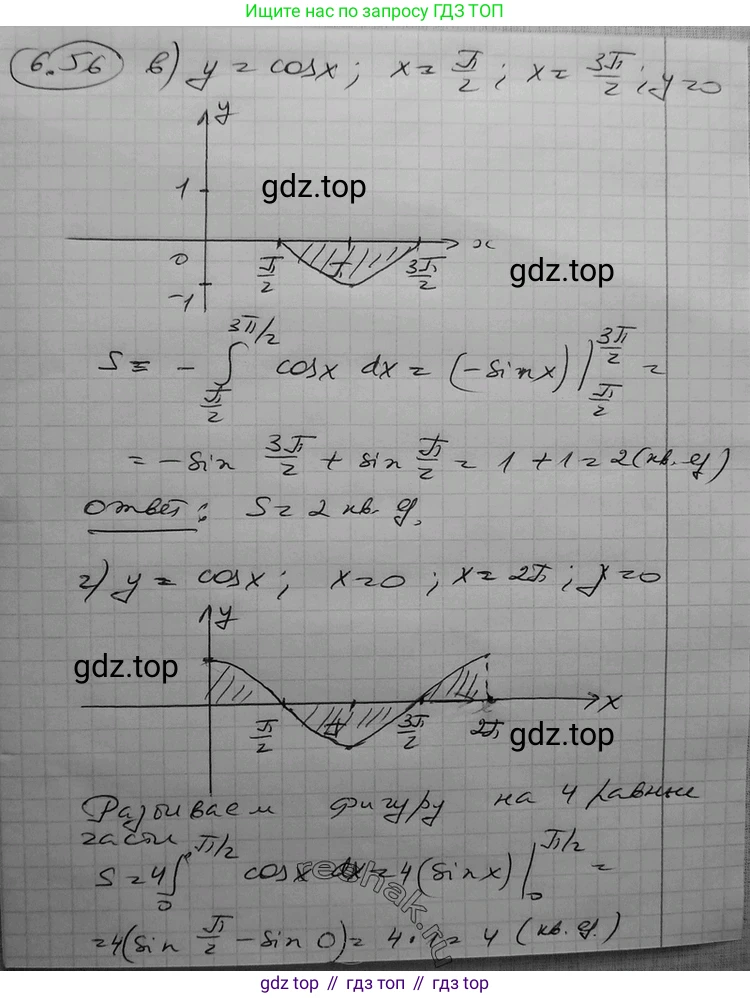 Ищите нас по запросу ГДЗ ТОП
6.56 в) y = cosx; x = π/2; x = 3π/2; y=0
y
1
gdz.top
0 π/2 π 3π/2 x
gdz.top
-1
S = - ∫_{π/2}^{3π/2} cosx dx = (-sinx) |_{π/2}^{3π/2} =
= -sin 3π/2 + sin π/2 = 1 + 1 = 2 (кв. ед)
Ответ: S = 2 кв. ед.
г) y = cosx; x=0; x = 2π; y=0
y
gdz.top
π/2 π 3π/2 2π x
gdz.top
Разбиваем фигуру на 4 равные
части
S = 4 ∫_{0}^{π/2} cosx dx = 4 (sinx) |_{0}^{π/2} =
reshak.ru
= 4(sin π/2 - sin 0) = 4·1 = 4 (кв. ед.)
gdz.top // гдз топ // gdz.top // гдз топ